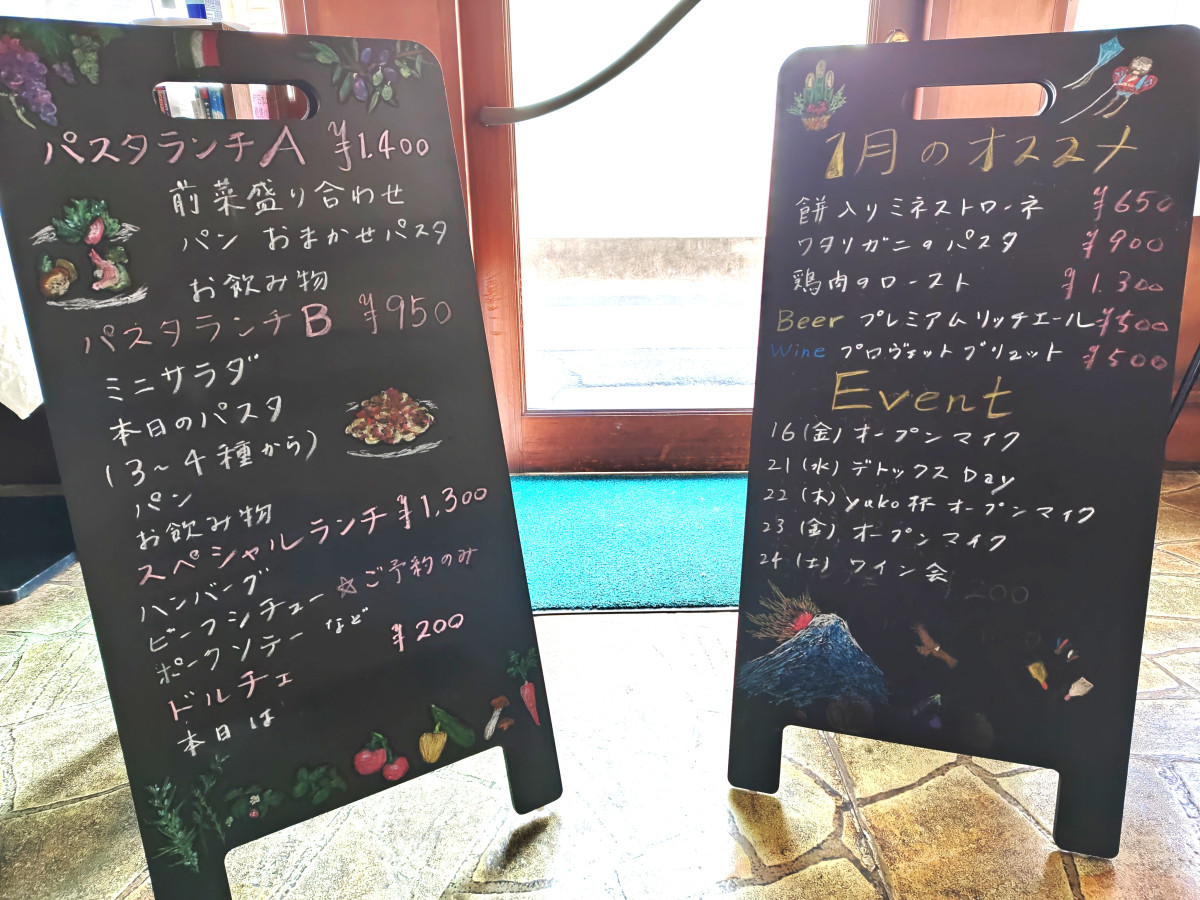 パスタランチA ¥1.400
前菜盛り合わせ
パン おまかせパスタ
お飲み物
パスタランチB ¥950
ミニサラダ
本日のパスタ
(3〜4種から)
パン
お飲み物
スペシャルランチ ¥1,300
ハンバーグ
ビーフシチュー ☆ご予約のみ
ポークソテー など
ドルチェ ¥200
本日は
1月のオススメ
餅入りミネストローネ ¥650
ワタリガニのパスタ ¥900
鶏肉のロースト ¥1.300
Beer プレミアムリッチエール ¥500
Wine プロヴェット ブリュット ¥500
Event
16(金)オープンマイク
21(水)デトックスDay
22(木)yuko杯オープンマイク
23(金)オープンマイク
24(土)ワイン会